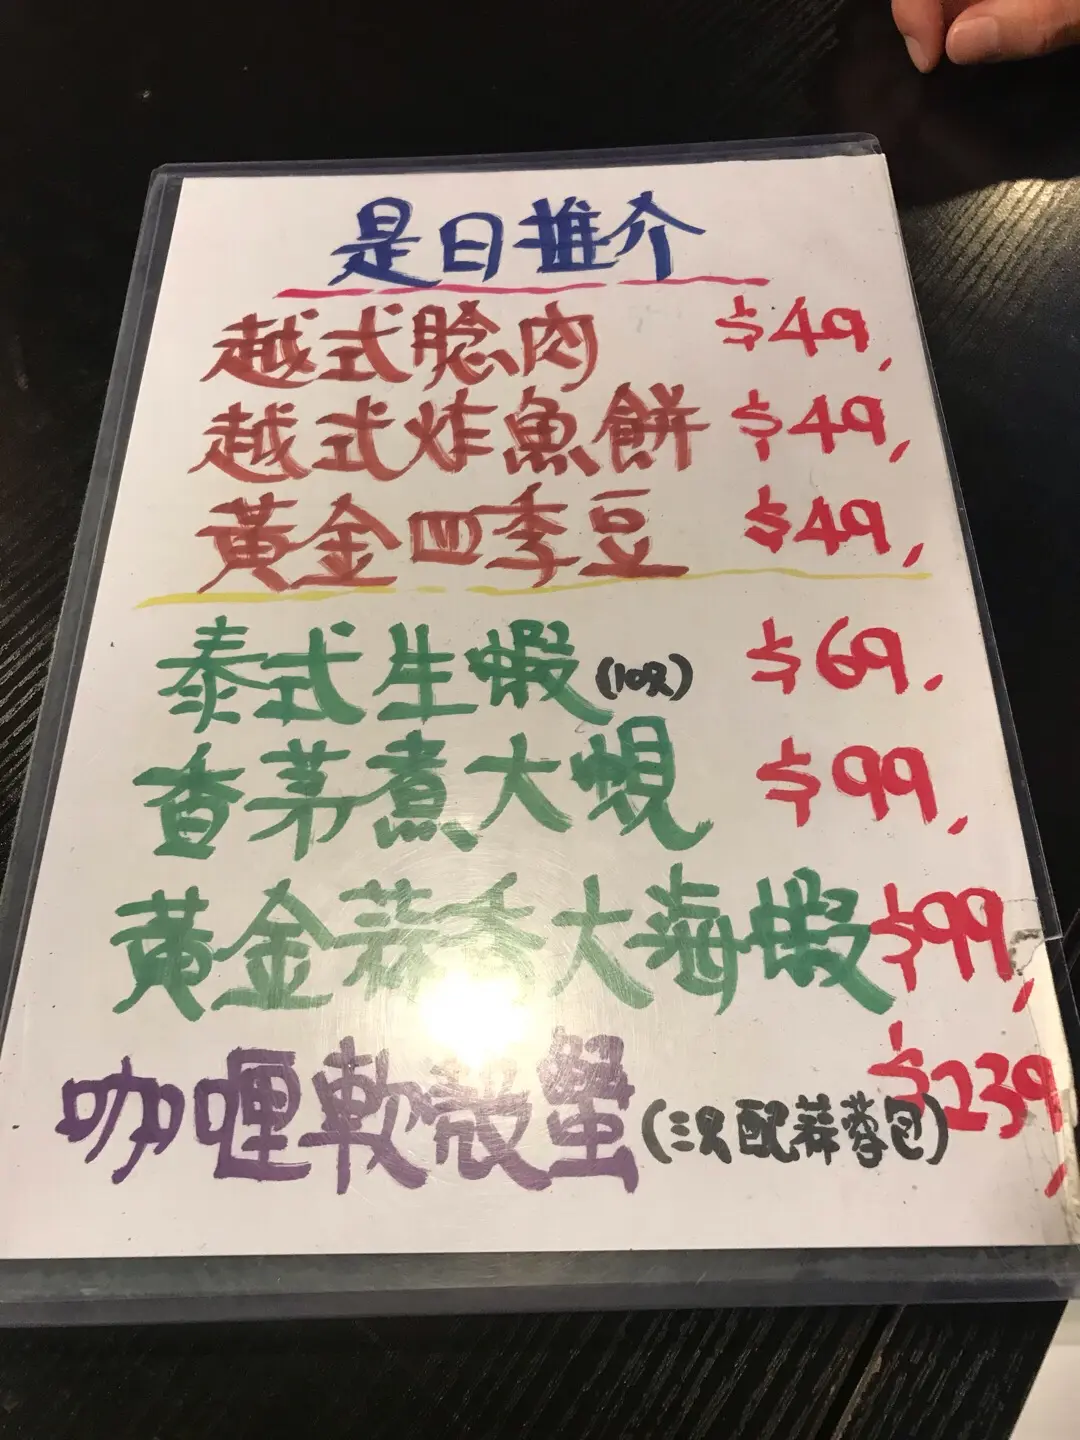 是日推介
越式腍肉 $49,
越式炸魚餅 $49,
黃金四季豆 $49,
泰式生蝦(10只) $69.
香茅煮大蜆 $99,
黃金蒜香大海蝦 $99,
咖喱軟殼蟹(三只配蒜蓉包) $239,